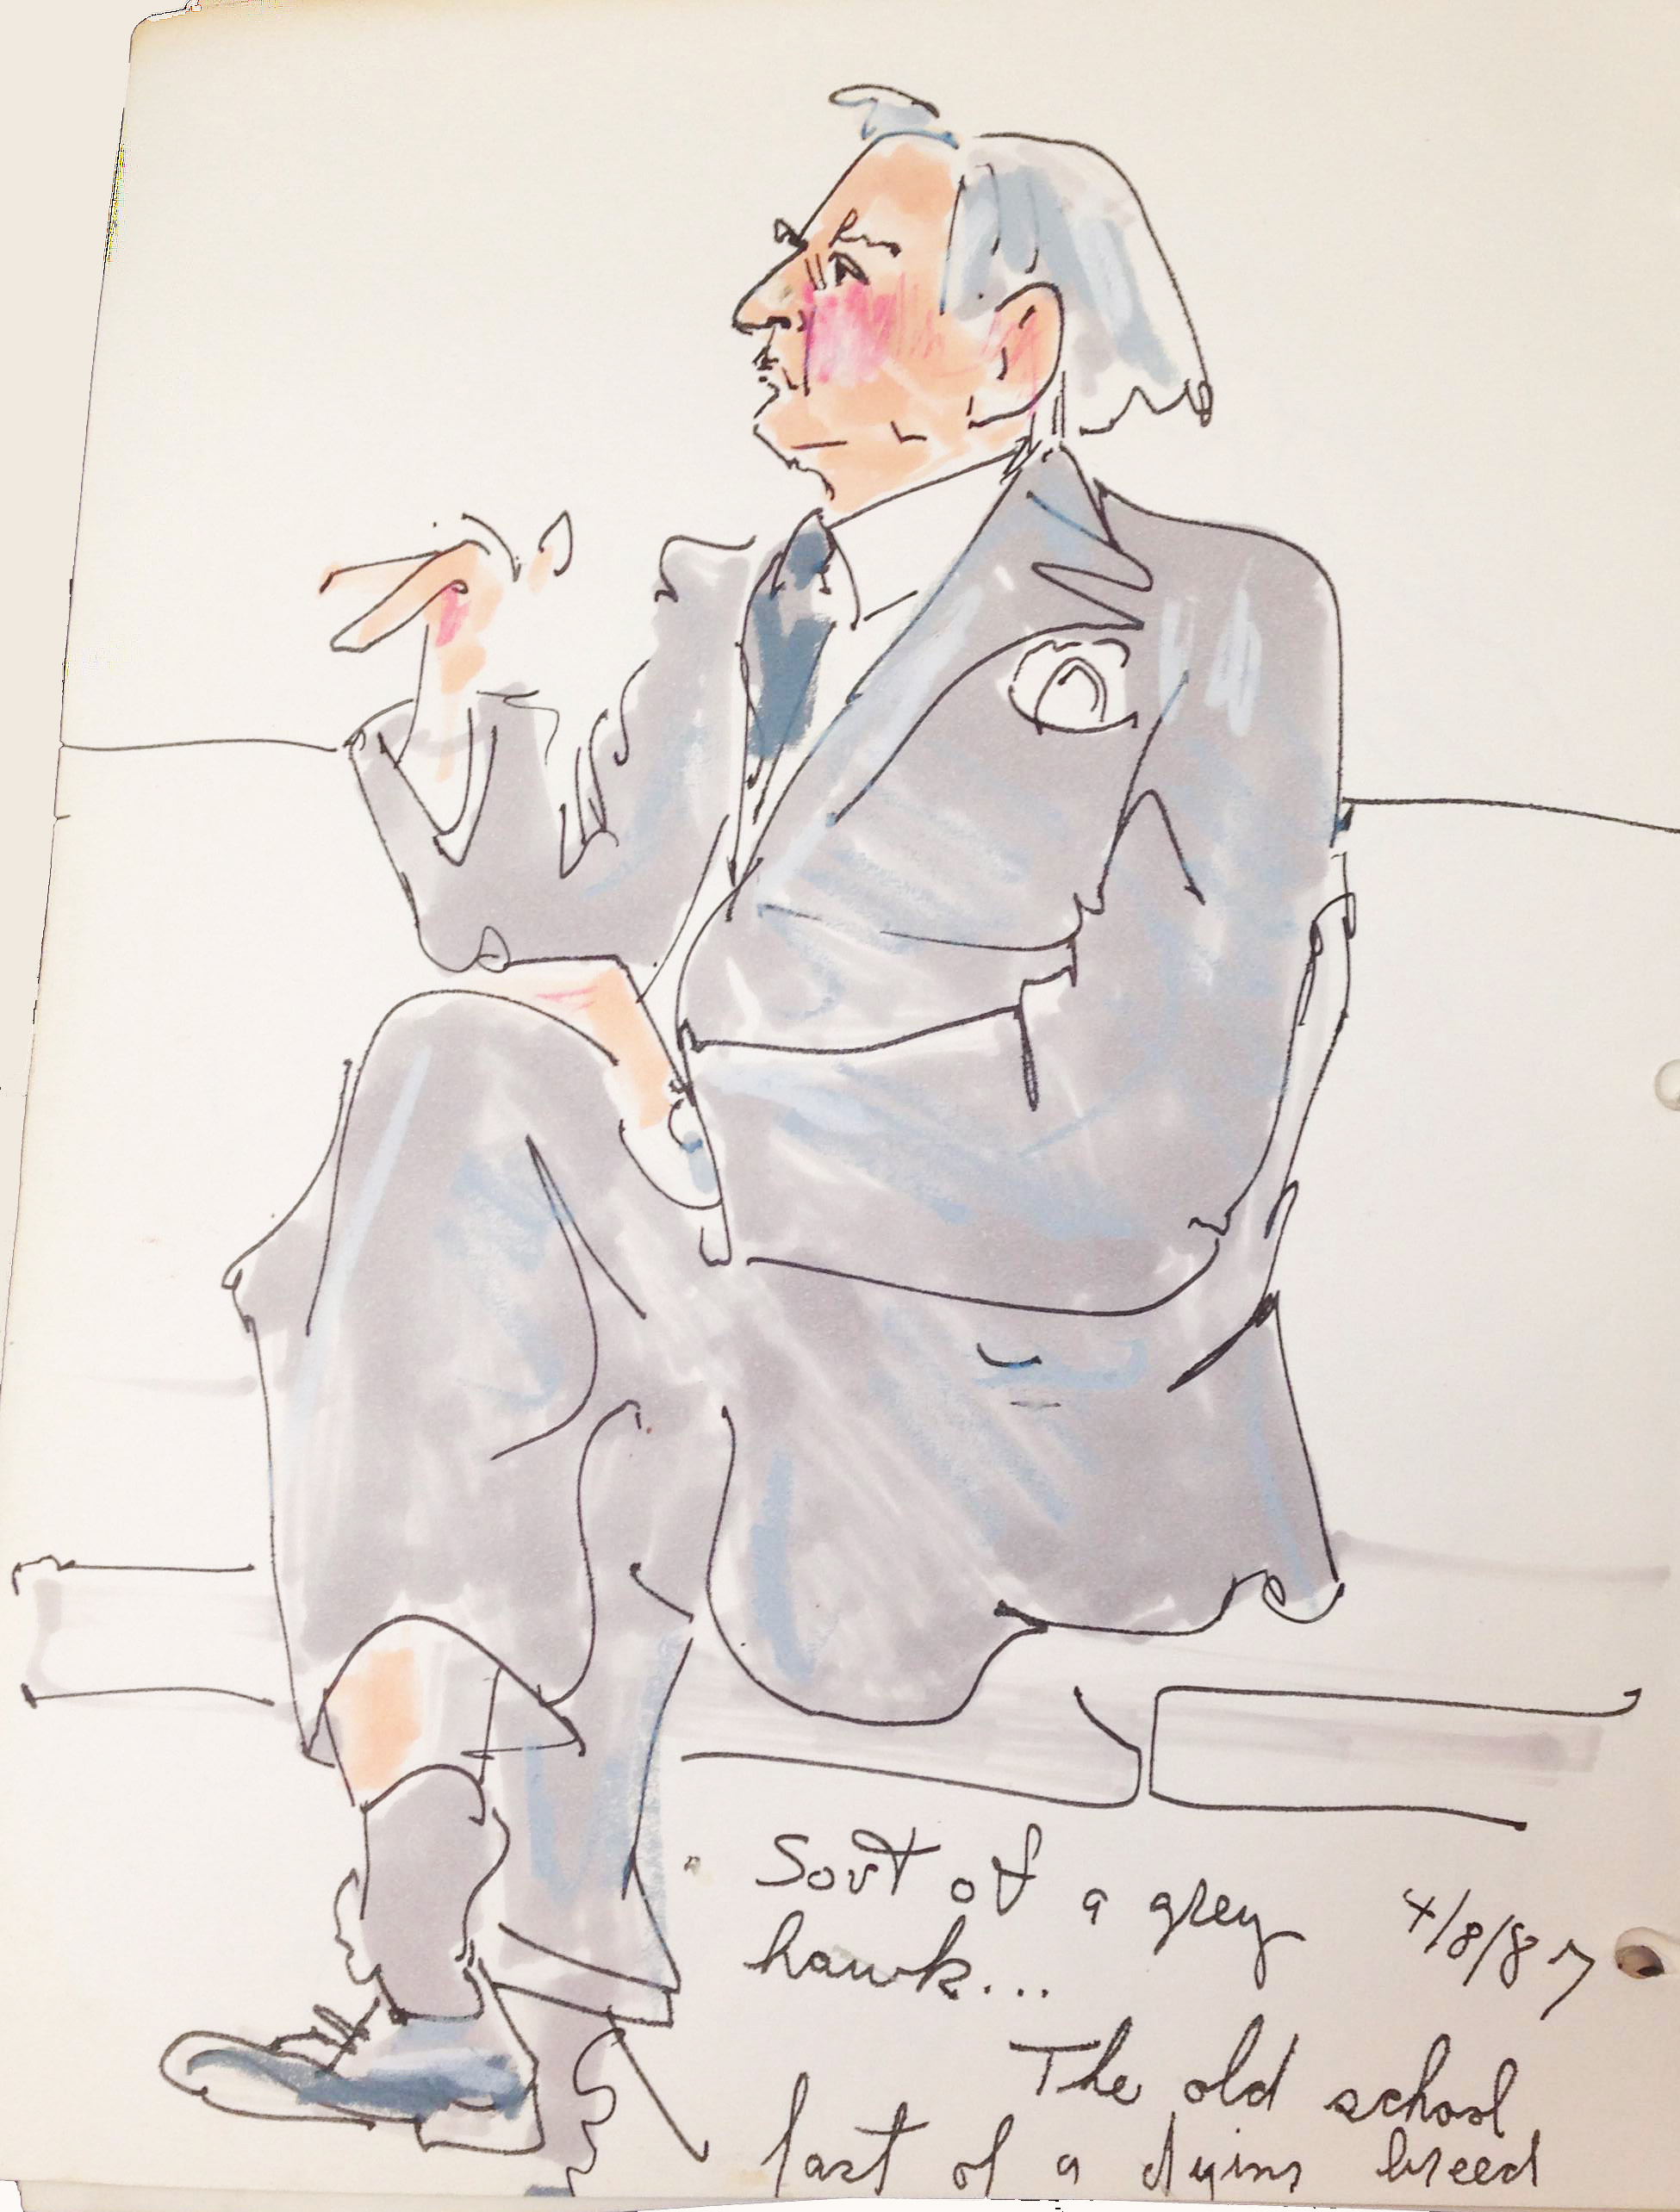 Sort of a grey 4/8/87
hawk...
The old school
last of a dying breed